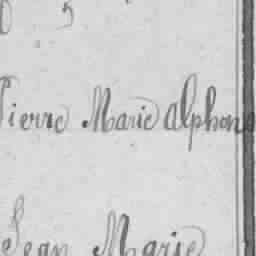 Pierre Marie Alphons
Jean Marie